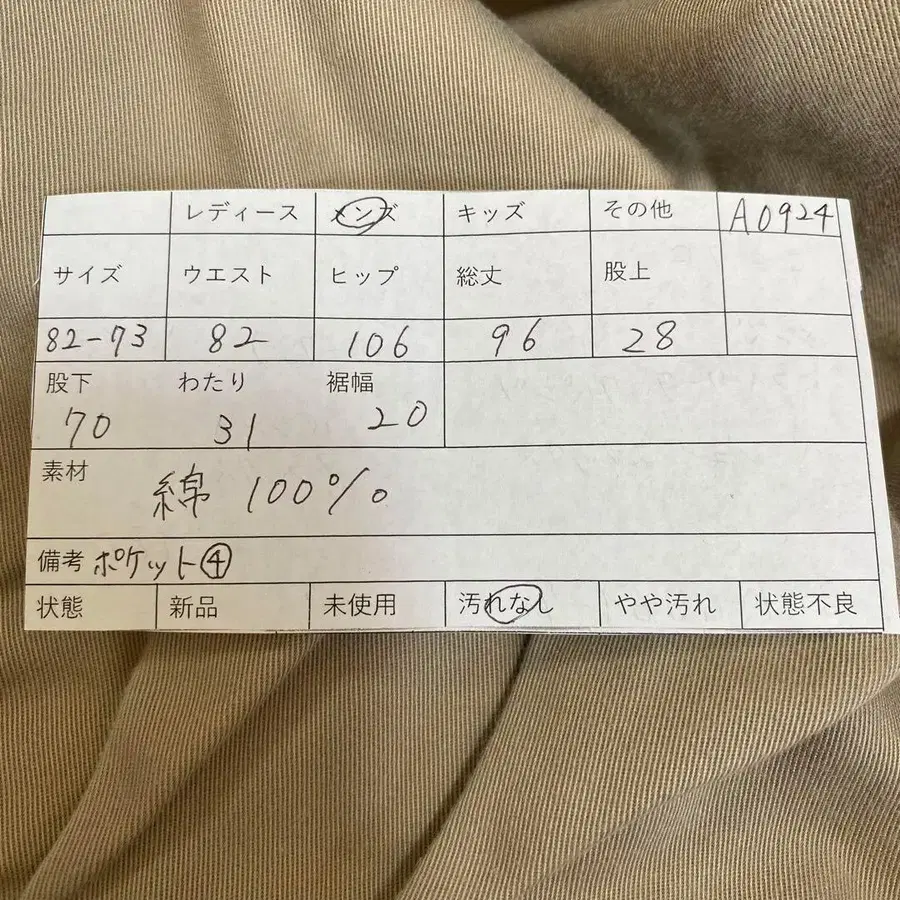 レディース メンズ キッズ その他 A0924
サイズ ウエスト ヒップ 総丈 股上
82-73 82 106 96 28
股下 わたり 裾幅
70 31 20
素材
綿 100%
備考 ポケット④
状態 新品 未使用 汚れなし やや汚れ 状態不良